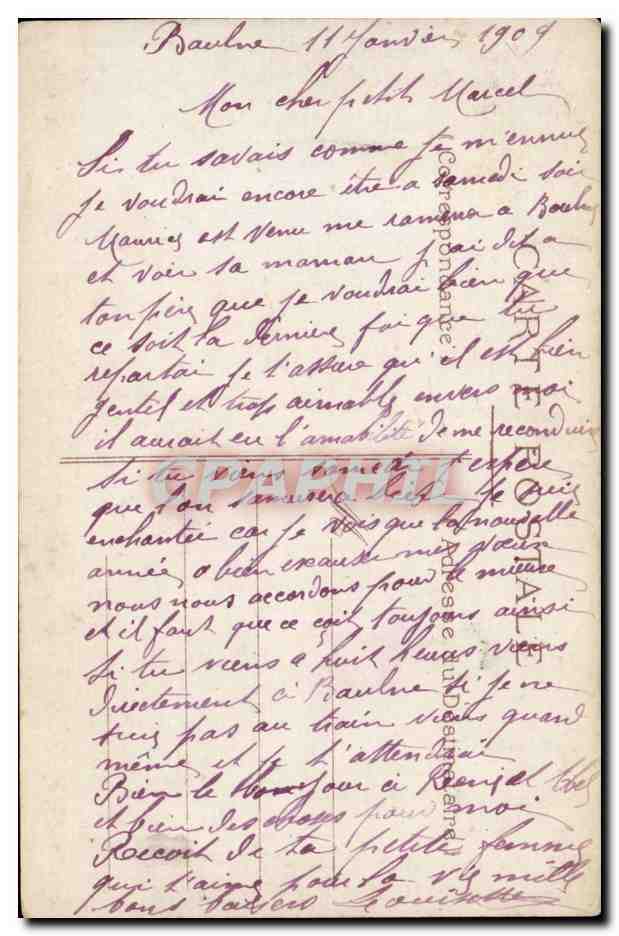 Baulne 11 Janvier 1909
Mon cher petit Marcel
Si tu savais comme je m'ennui
je voudrai encore être a samedi soir
Maurice est venu me ramena a Baulne
et voir sa maman j'ai dit a
ton père que je voudrai bien que
ce soit la dernière foi que tu
repartai je t'assure qu'il est bien
gentil et trop aimable envers moi
il aurait eu l'amabilité de me reconduire
Si tu viens samedi
que l'on je suis
enchantée car je vois que la nouvelle
année a bien exaucé mes vœux
nous nous accordons pour le mieux
et il faut que ce çoit toujours ainsi
Si tu viens a huit heures viens
directement à Baulne si je ne
suis pas au train viens quand
même et je t'attendrai
Bien le bonjour à
et bien des choses pour moi
Recoit de ta petite femme
qui t'aime pour la vie mille
bons baisers Louisette
CARTE POSTALE
Correspondance
Adresse du Destinataire
CPAPHIL